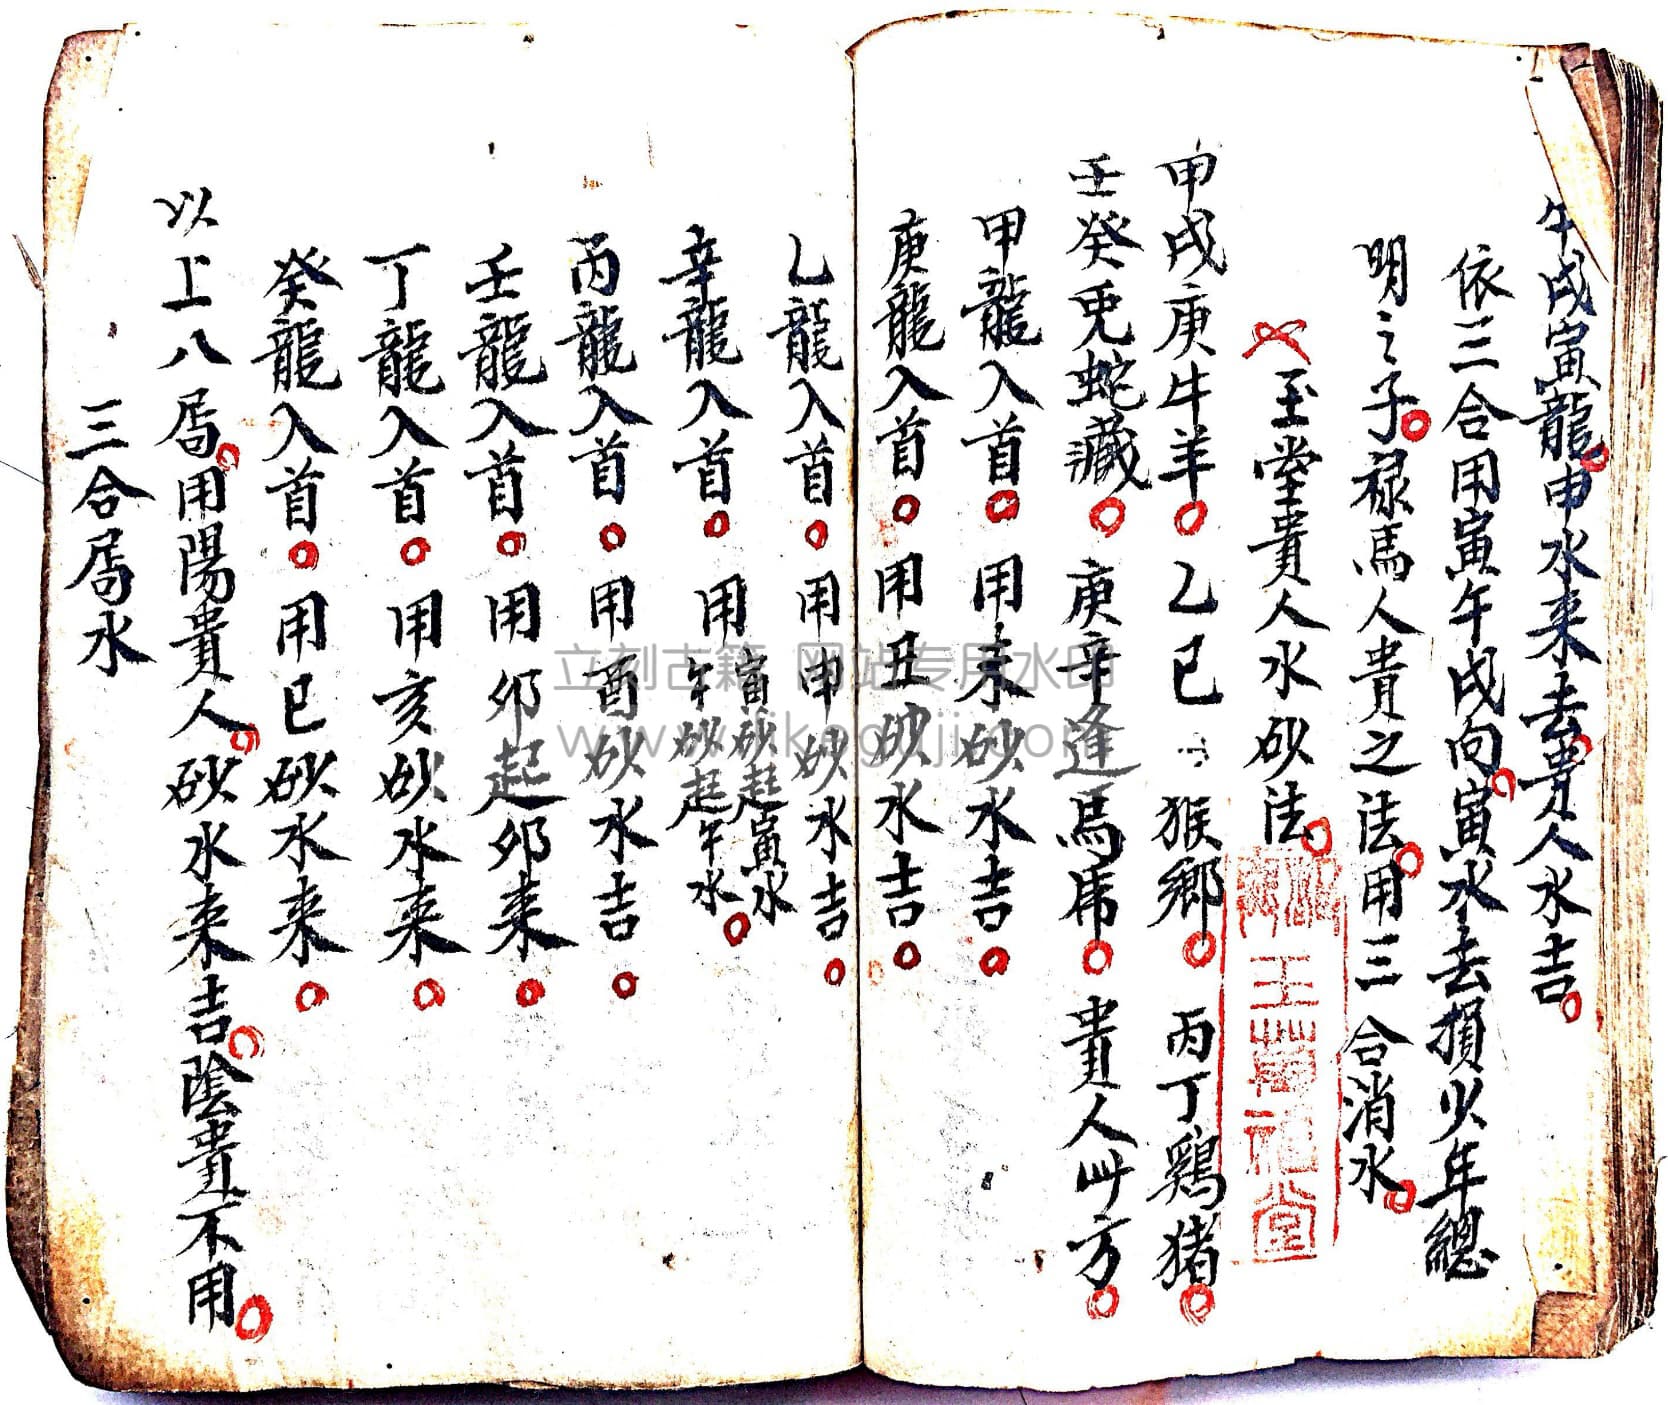 午戌寅龍申水来去貴人水吉
依三合用寅午戌向寅水去損火年總
明之子禄馬人貴之法用三合消水
玉堂貴人水砂法
甲戌庚牛羊乙巳猴鄉丙丁鷄猪
壬癸兎蛇藏庚辛逢馬虎貴人此方
甲龍入首用未砂水吉
庚龍入首用丑砂水吉
乙龍入首用申砂水吉
辛龍入首用寅砂起寅水
午砂起午水
丙龍入首用酉砂水吉
壬龍入首用卯起卯来
丁龍入首用亥砂水来
癸龍入首用巳砂水来
以上八局用陽貴人砂水来吉陰貴不用
三合局水
王萬福堂
立刻古籍 网站专用水印